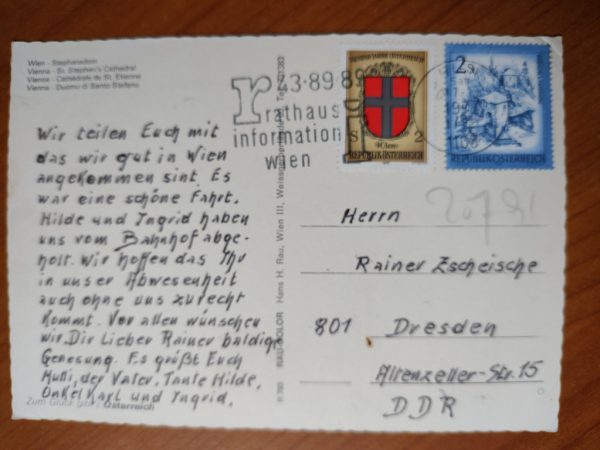 Wien - Stephansdom
Vienna - St. Stephen's Cathedral
Vienne - Cathédrale de St. Etienne
Vienna - Duomo di Santo Stefano
Wir teilen Euch mit
das wir gut in Wien
angekommen sint. Es
war eine schöne Fahrt.
Hilde und Ingrid haben
uns vom Bahnhof abge-
holt. Wir hoffen das Ihr
in unser Abwesenheit
auch ohne uns zurecht
kommt. Vor allen wünschen
wir Dir Lieber Rainer baldige
Genesung. Es grüßt Euch
Mutti, der Vater, Tante Hilde,
Onkel Karl und Ingrid.
Zum Glück gibt's Österreich
RAU-COLOR Hans H. Rau, Wien III,
3·89
rathaus
information
wien
TAUSEND JAHRE ÖSTERREICH
Wien
S 2
REPUBLIK ÖSTERREICH
2 S
REPUBLIK ÖSTERREICH
Herrn
Rainer Zscheische
801 Dresden
Altenzeller-Str. 15
DDR